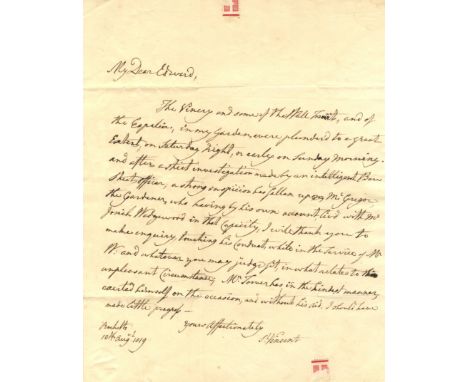 My Dear Edward,
The Vinery and some of the Wall Fruit, and of
the Espalier, in my Garden were plundered to a great
Extent, on Saturday Night, or early on Sunday Morning.
and after a strict investigation made by an intelligent Bow
Street officer, a strong suspicion has fallen upon McGregor
the Gardener, who having by his own account lived with Mr
Josiah Wedgwood in that Capacity, I will thank you to
make enquiry touching his Conduct, while in the Service of Mr
W: and whatever you may judge fit, in what relates to this
unpleasant Circumstance, Mr Tower has in the kindest manner,
exerted himself on the occasion, and without his aid, I should have
made little progress —
yours affectionately
St Vincent
Rochetts
10th Augt 1819